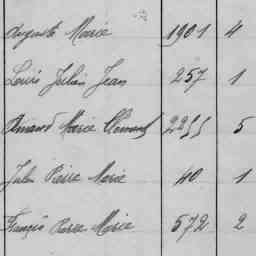 Auguste Marie 1901 4
Louis Julien Jean 257 1
Armand Marie Clément 2255 5
Jules Pierre Marie 40 1
François Pierre Marie 572 2